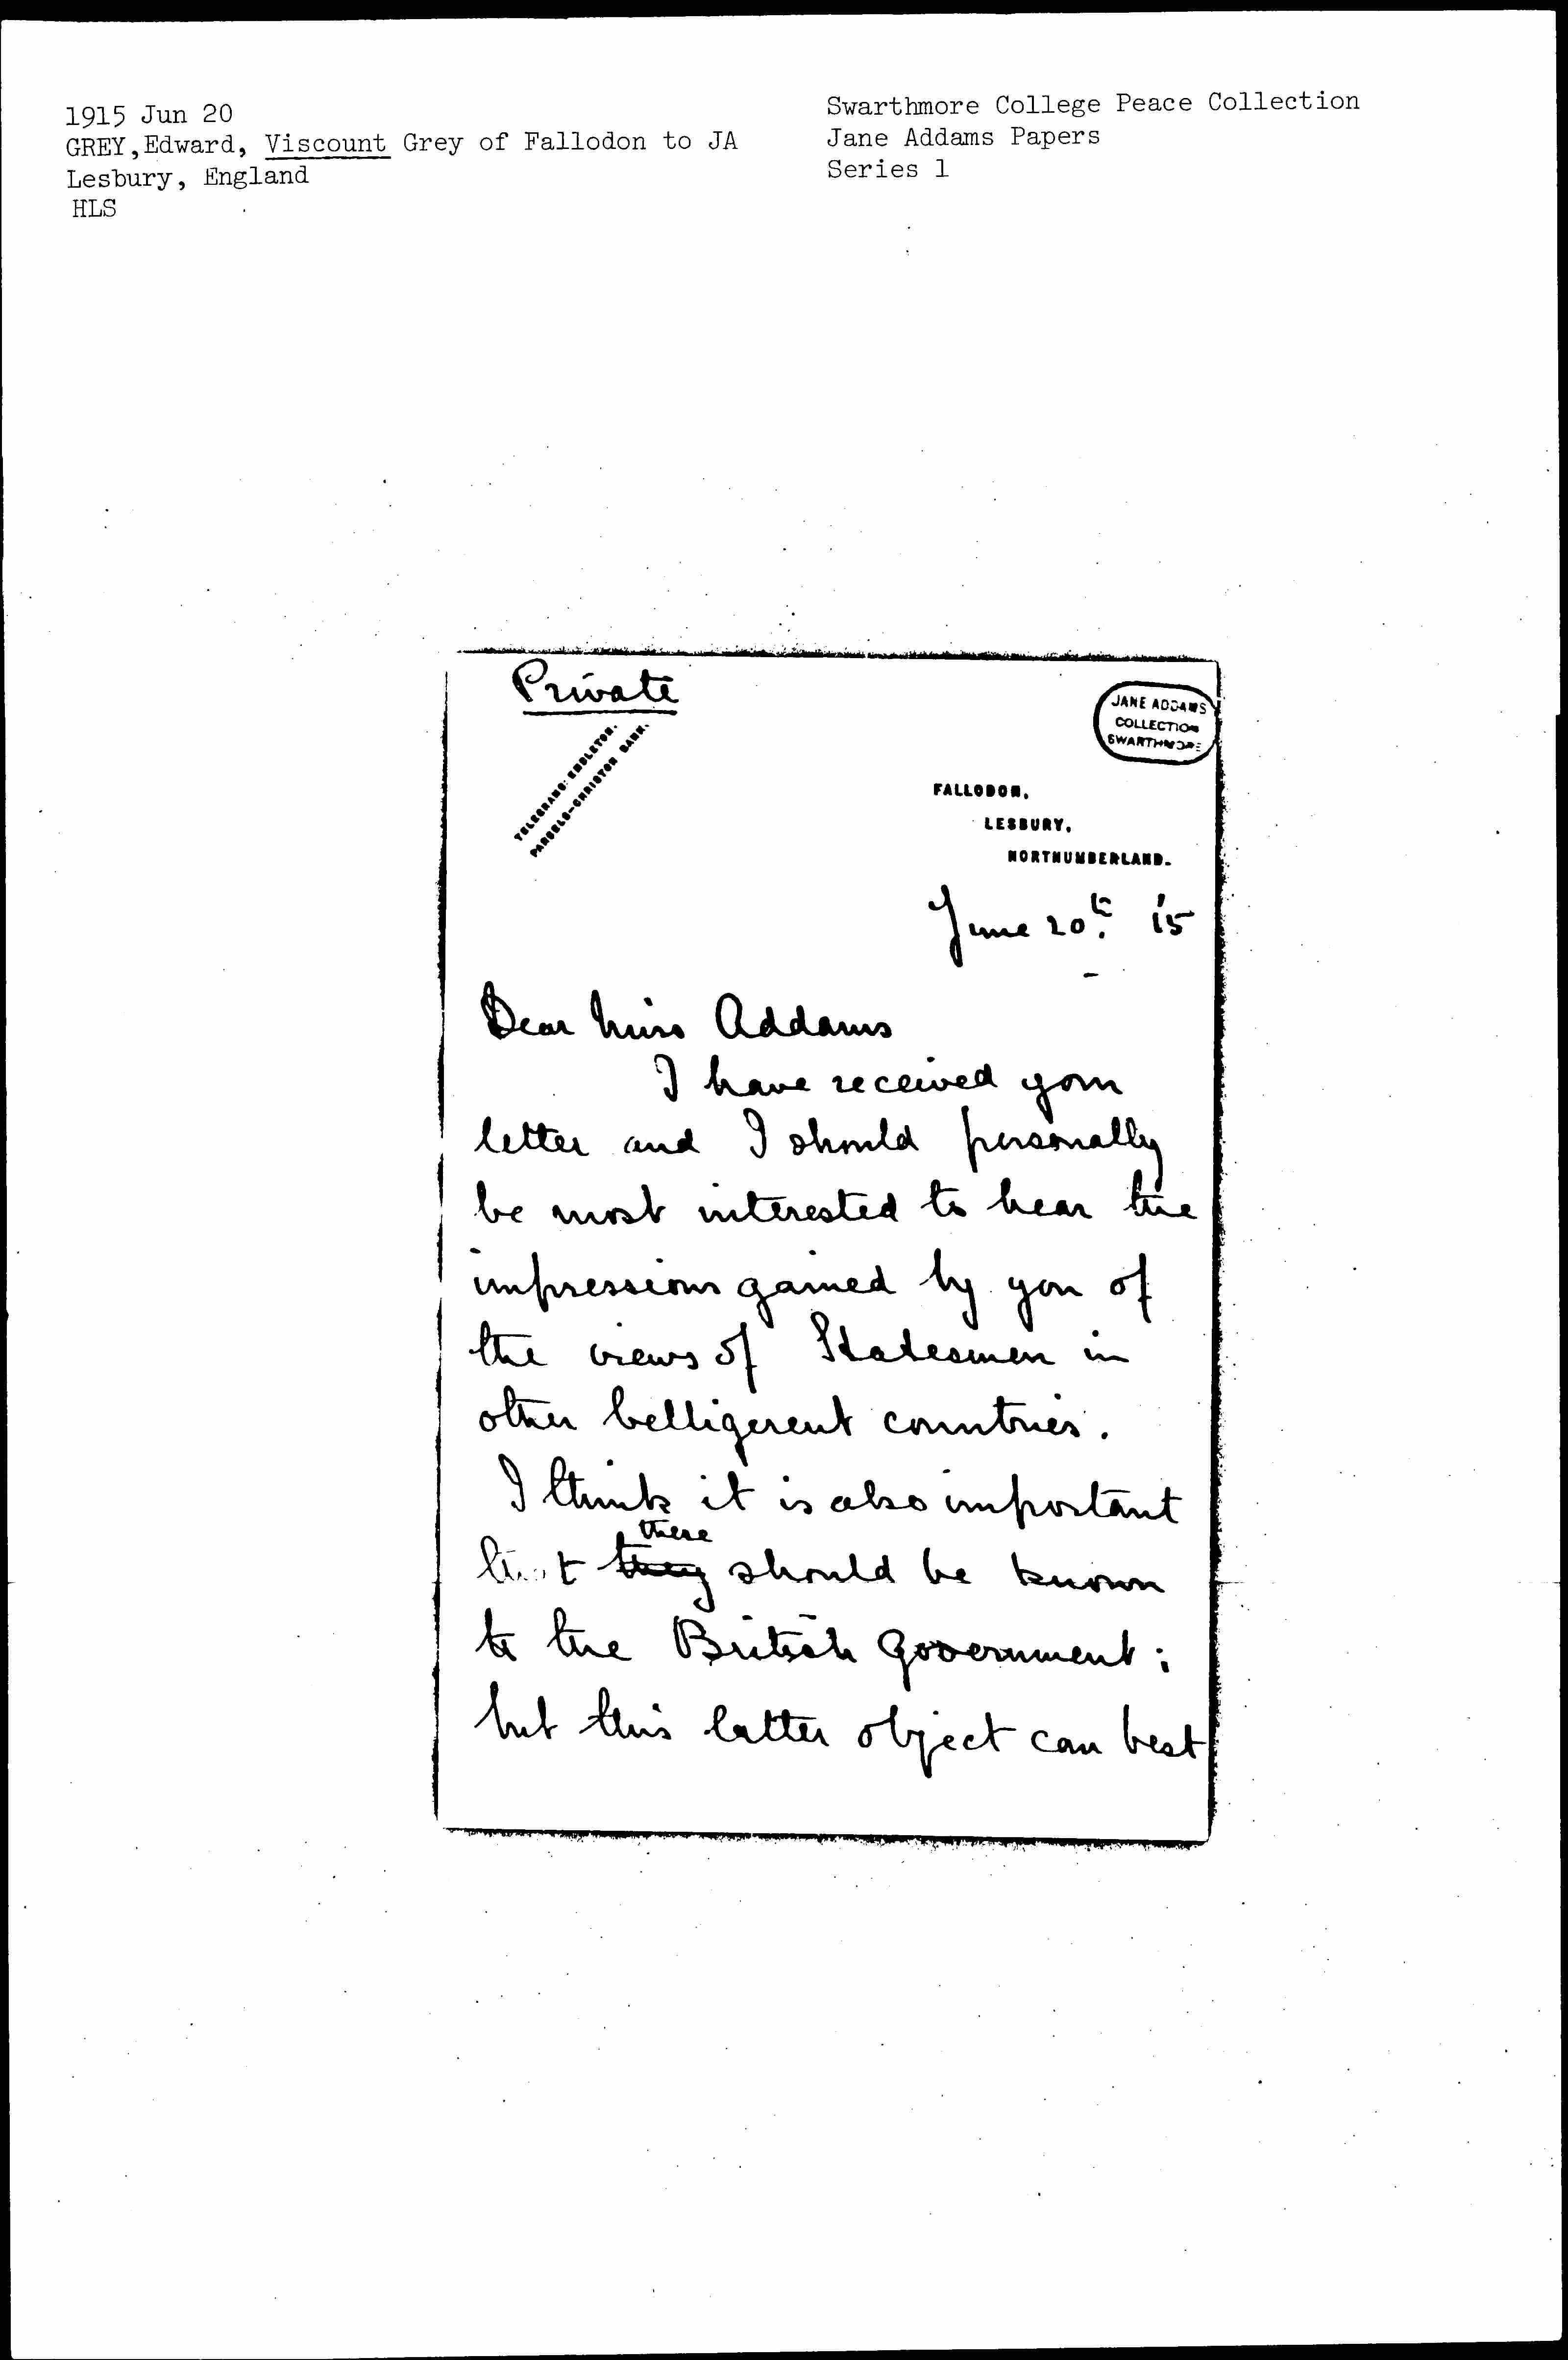 1915 Jun 20
GREY,Edward, Viscount Grey of Fallodon to JA
Lesbury, England
HLS
Swarthmore College Peace Collection
Jane Addams Papers
Series 1
Private
JANE ADDAMS
COLLECTION
SWARTHMORE
TELEGRAMS: EMBLETON.
PARCELS-CHRISTON BANK.
FALLODON,
LESBURY,
NORTHUMBERLAND.
June 20th. '15
Dear Miss Addams
I have received your
letter and I should personally
be most interested to hear the
impressions gained by you of
the views of Statesmen in
other belligerent countries.
I think it is also important
there
that they should be known
to the British Government;
but this latter object can best